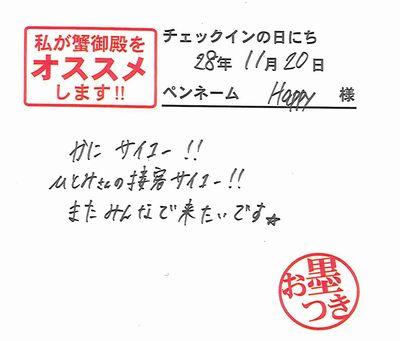 私が蟹御殿を
オススメ
します!!
チェックインの日にち
28年 11月 20日
ペンネーム Happy 様
かに サイコー !!
ひとみさんの接客サイコー!!
またみんなで来たいです☆
お墨つき